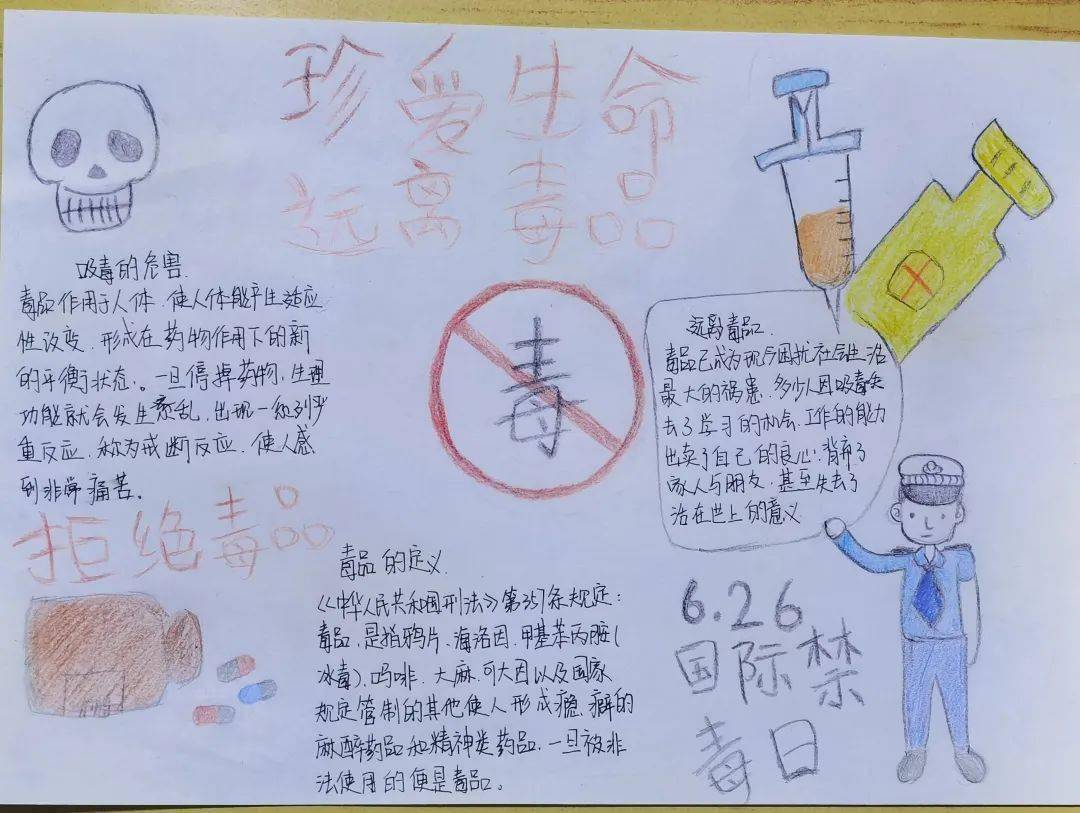 珍爱生命
远离毒品
吸毒的危害.
毒品作用于人体.使人体能产生适应
性改变.形成在药物作用下的新
的平衡状态.。一旦停掉药物.生理
功能就会发生紊乱.出现一系列严
重反应.称为戒断反应.使人感
到非常痛苦。
毒
远离毒品.
毒品已成为现今困扰社会生活
最大的祸患.多少人因吸毒失
去了学习的机会.工作的能力
出卖了自己的良心.背弃了
家人与朋友.甚至失去了
活在世上的意义
拒绝毒品
毒品的定义.
《中华人民共和国刑法》第357条规定:
毒品.是指鸦片、海洛因.甲基苯丙胺(
冰毒)、吗啡.大麻.可卡因以及国家
规定管制的其他使人形成瘾.癖的
麻醉药品和精神类药品.一旦被非
法使用的便是毒品。
6.26
国际禁
毒日